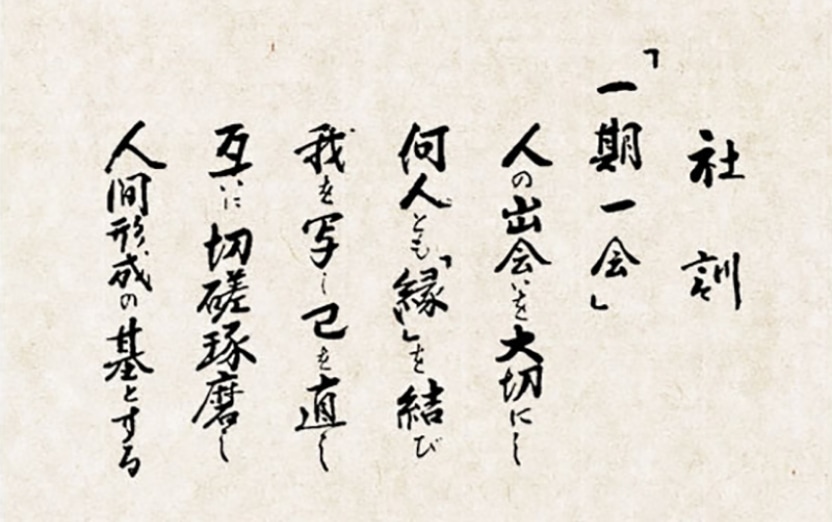 社訓
「一期一会」
人の出会いを大切にし
何人とも「縁」を結び
我を写し己を直し
互いに切磋琢磨し
人間形成の基とする